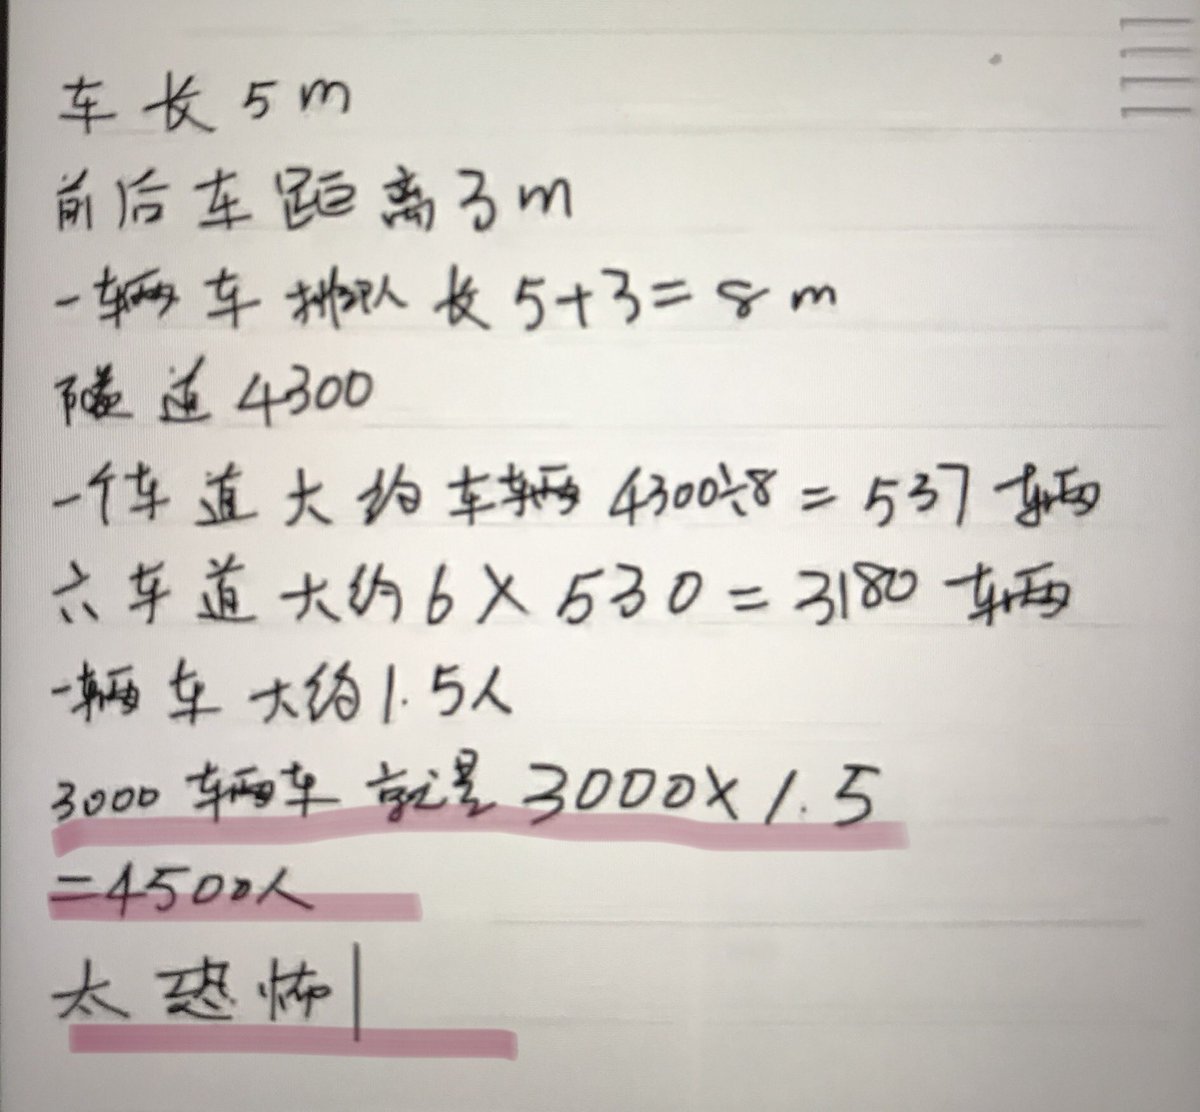 车长5m
前后车距离3m
一辆车排队长5+3=8m
隧道4300
一个车道大约车辆4300÷8=537辆
六车道大约6×530=3180辆
一辆车大约1.5人
3000辆车就是3000×1.5
=4500人
太恐怖